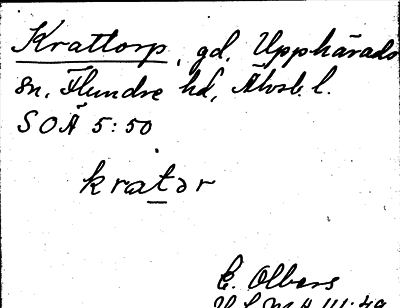 Krattorp, gd, Upphärads
sn. Flundre hd, Älvsb. l.
SOÄ 5:50
kratər
E. Olbers